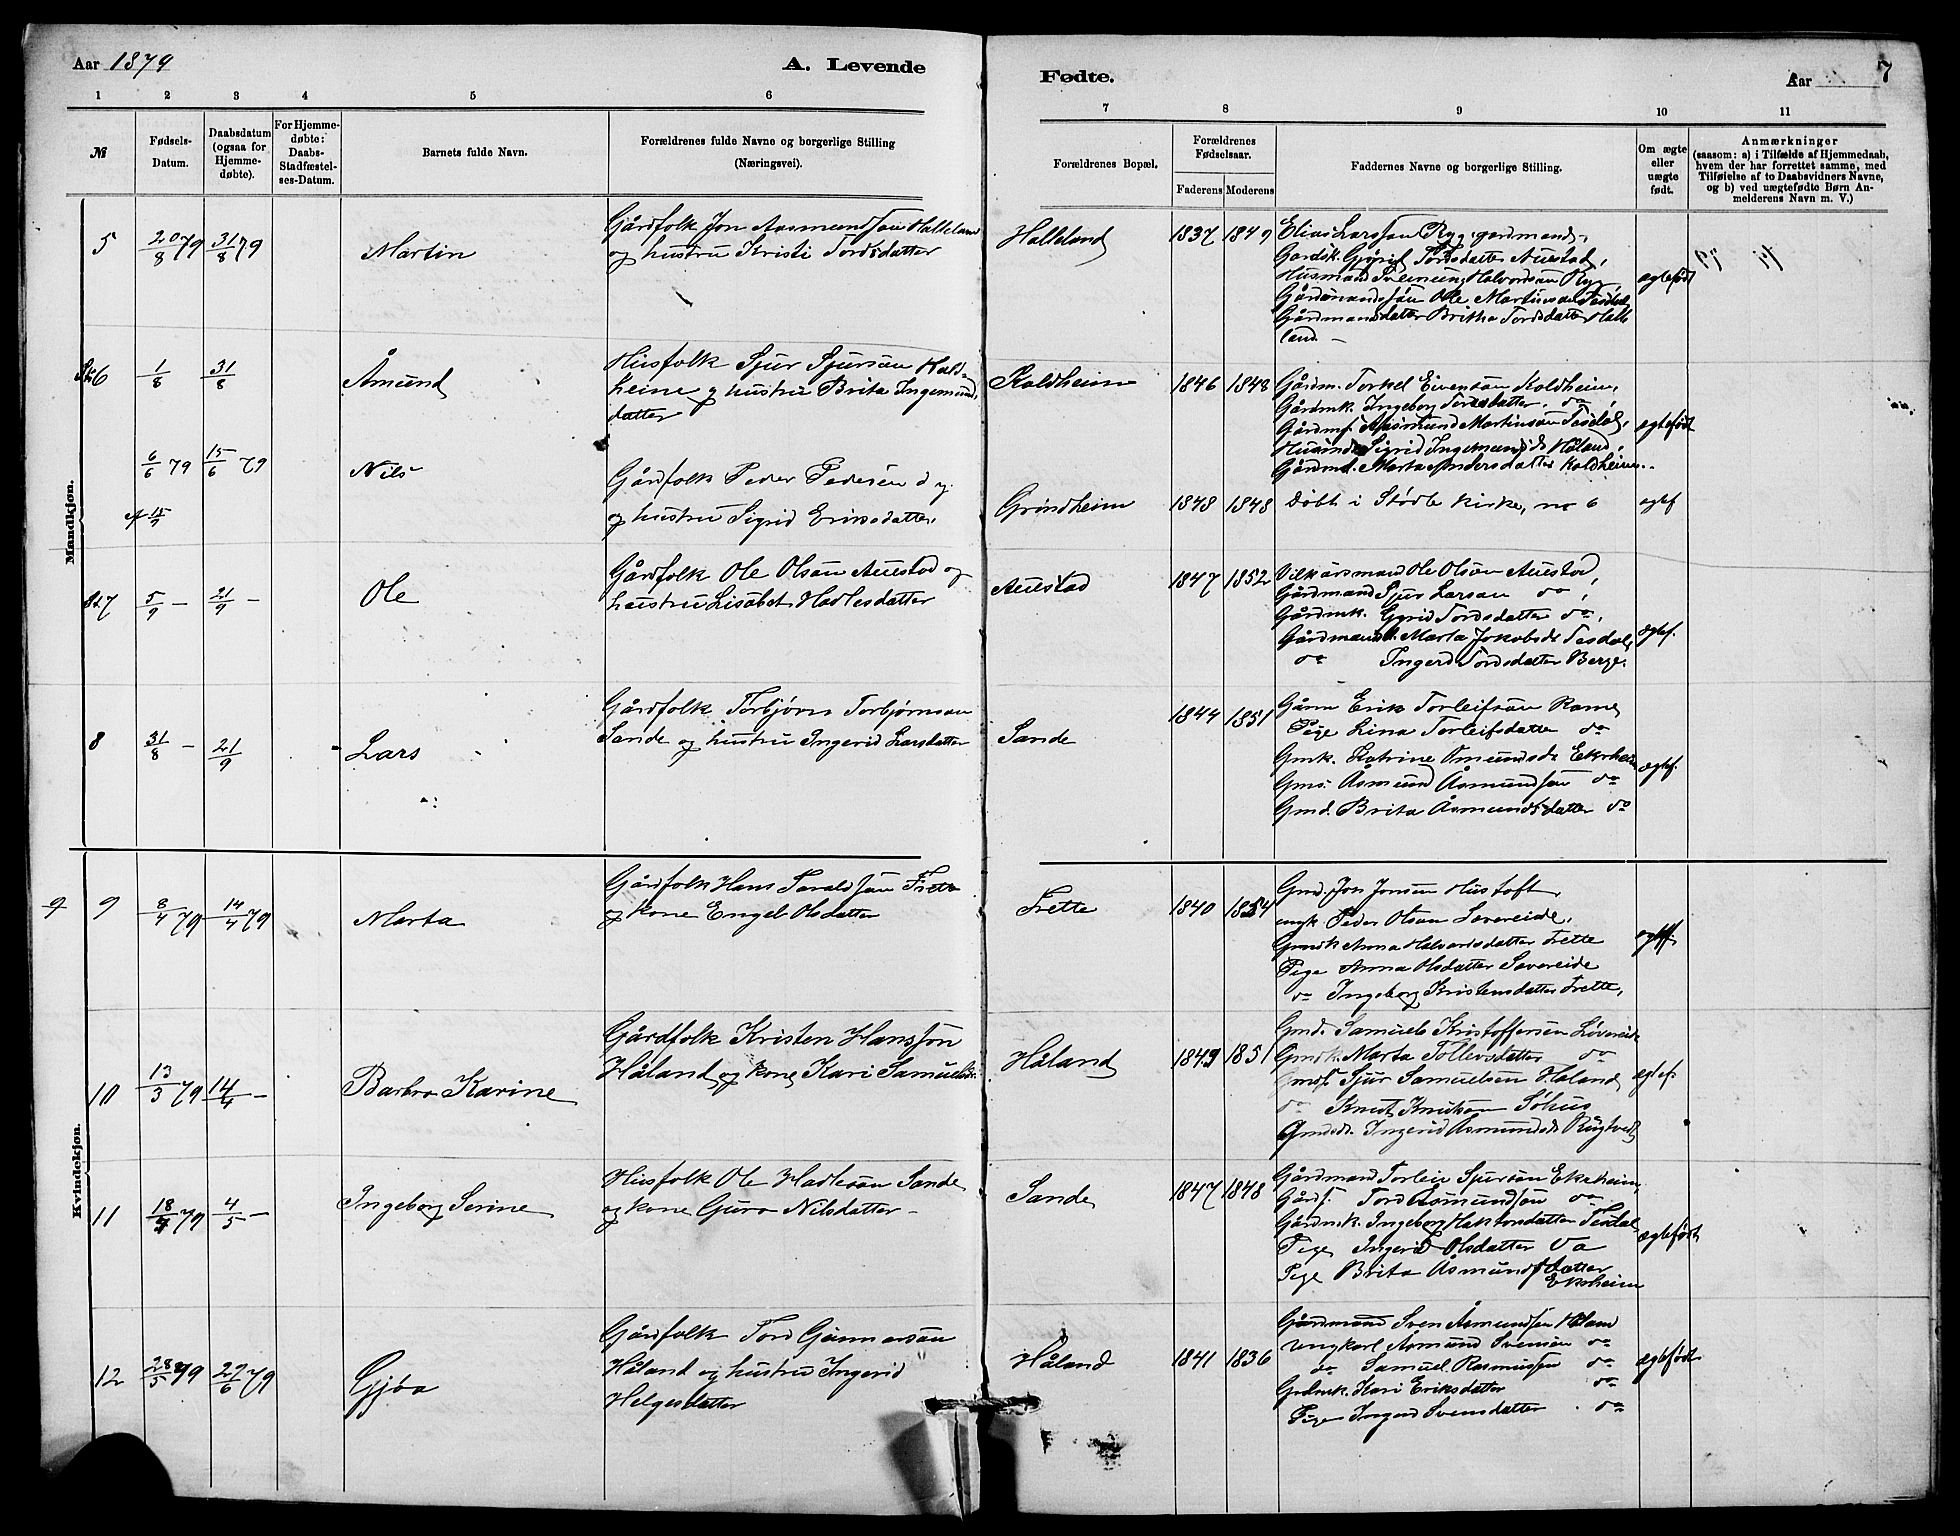 Aar 1879
A. Levende
Fødte.
Aar 7
1 2 3 4 5 6 7 8 9 10 11
№
Fødsels-Datum.
Daabsdatum (ogsaa for Hjemme-døbte).
For Hjemme-døbte: Daabs-Stadfæstel-ses-Datum.
Barnets fulde Navn.
Forældrenes fulde Navne og borgerlige Stilling (Næringsvei).
Forældrenes Bopæl.
Forældrenes Fødselsaar.
Faderens Moderens
Faddernes Navne og borgerlige Stilling.
Om ægte eller uægte født.
Anmærkninger
(saasom: a) i Tilfælde af Hjemmedaab, hvem der har forrettet samme, med Tilføielse af to Daabsvidners Navne, og b) ved uægtefødte Børn An-melderens Navn m. V.)
Mandkjøn.
5 20/8 79 31/8 79 Martin
Gårdfolk Jon Aasmundsøn Halleland
og hustru Kristi Tordsdatter
Halleland 1837 1849
Elias Larssøn Ryg, gardmand,
Gardsk. Gjøril Tordsdatter Auestad,
Husmand Halvordsøn Ryg,
Gårdmandssøn Ole Martinsøn Tesdal
Gårdmansdatter Britha Tordsdatter Halle
land. –
ægtefødt
6 1/8 31/8 Åmund
Husfolk Sjur Sjursøn Kold-
heim og hustru Brita Ingemund
datter
Koldheim 1846 1848
Gårdm. Torkel Eivensøn Koldheim,
Gårdmk. Ingeborg Toresdatter do,
Gårdmf. Aasmund Martinsøn Tesdal,
Sigrid Ingemundsd. Håland,
Gårdmd. Marta Andersdatter Koldheim.
ægtefødt
6/6 79 15/6 79 Nils
Gårdfolk Peder Pedersen d y.
og hustru Sigrid Eriksdatter.
Grindheim 1848 1848 Døbt i Stødle kirke, no 6 ægtef
7 5/9 – 21/9 – Ole
Gårdfolk Ole Olsøn Auestad og
haustru Lisabet Hadlesdatter
Auestad 1847 1852
Vilkårsmand Ole Olsøn Auestad,
Gårdmand Sjur Larsøn do,
Gårdmk. Gyrid Tordsdatter do,
Gårdmansd. Marta Jokobsd. Tesdal,
do Ingerd Tordsdatter Berge.
ægtef.
8 31/8 – 21/9 Lars
Gårdfolk Torbjørn Torbjørnsøn
Sande og hustru Ingerid Larsdatter
Sande 1844 1851
Gårm Erik Torleifsøn Rame
Pige Lina Torleifsdatter do
Gmk. Katrine Åmundsd. Ekrheim
Gms. Åsmund Åsmundsøn do
Gmd. Brita Åsmundsdatter do
ægtef.
Kvindekjøn.
9 9 8/4 79 14/4 79 Marta
Gårdfolk Hans Taraldsøn Frette
og kone Engel Olsdatter
Frette 1840 1854
Gmd. Jon Jonsen Hustoft
ungk Peder Olsøn Løvereide,
Gmdk Anna Halvardsdatter Frette
Pige Anna Olsdatter Løvereide
do Ingeborg Kristensdatter Frette,
ægtef.
10 13/3 79 14/4 – Barbro Karine
Gårdfolk Kristen Hanssøn
Håland og kone Kari Samuelsd.
Håland 1849 1851
Gmd. Samuel Kristoffersen Løvereide
Gmdk. Marta Tollevsdatter do
Gmdf. Sjur Samuelsen Håland
do Knut Knutsøn Søhus
Gmdsd. Ingerid Åsmundsd. Rugtvedt
ægtef.
11 18/4 79 4/5 – Ingeborg Serine
Husfolk Ole Hadlesøn Sande
og kone Guro Nilsdatter –
Sande 1847 1848
Gårdmand Torleiv Sjursøn Ekrheim,
Gårdf. Tord Åsmundsøn do
Gårdmk. Ingeborg Haktorsdatter Tesdal
Pige Ingerid Olsdatter
Pige Brita Åsmundsdatter
Ekrheim
ægtefødt
12 28/5 79 22/6 79 Gjøa
Gårdfolk Tord Gunnarsøn
Håland og hustru Ingerid
Helgesdatter
Håland 1841 1836
Gårdmand Sven Åsmundsøn Håland
Ungkarl Åsmund Svensen do
do Samuel Rasmusson do
Grdmk. Kari Eriksdatter do
Pige Ingerd Svensdatter do
ægtefødt